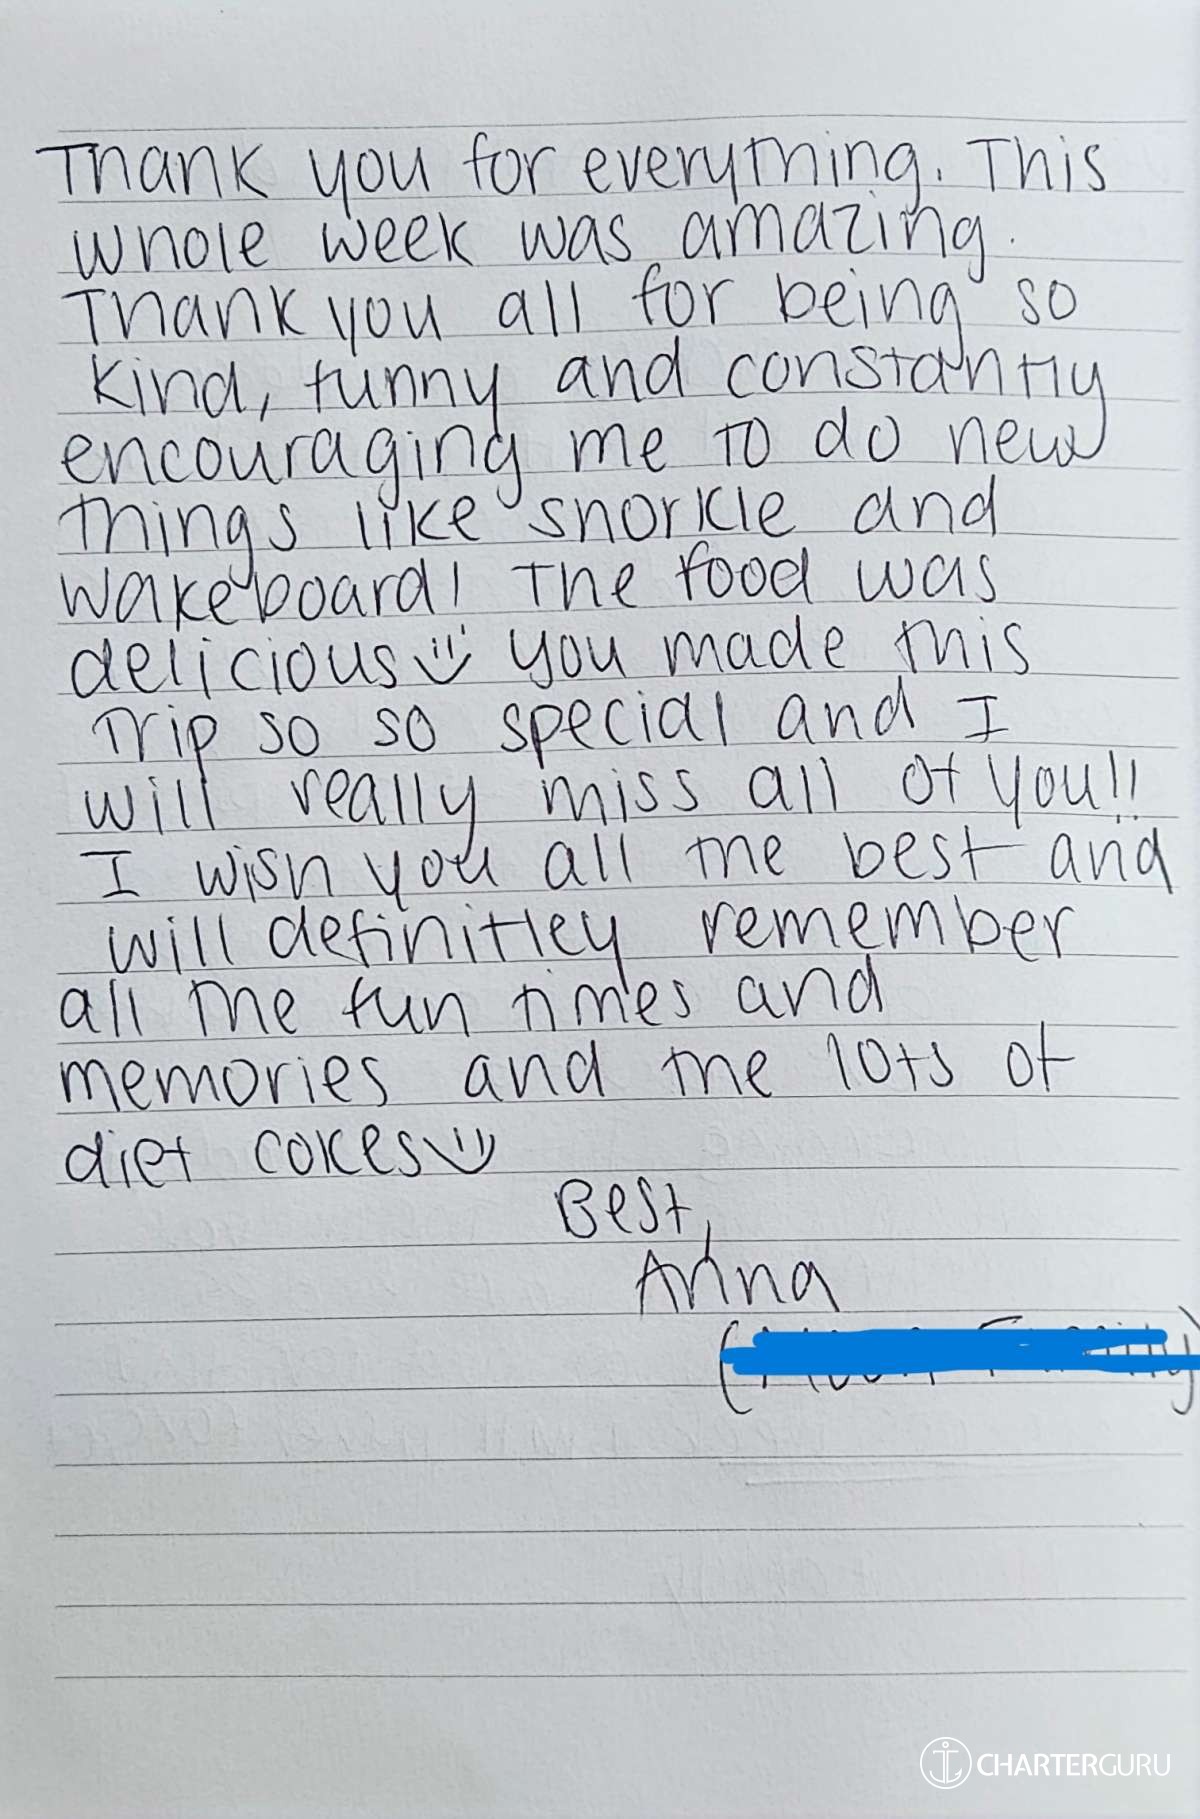 Thank you for everything. This
whole week was amazing.
Thank you all for being so
kind, funny and constantly
encouraging me to do new
things like snorkle and
wakeboard! The food was
delicious :) you made this
Trip so so special and I
will really miss all of you!!
I wish you all the best and
will definitley remember
all the fun times and
memories and the lots of
diet cokes :)
Best,
Anna
CHARTERGURU